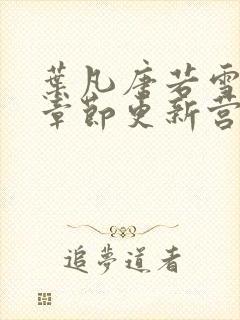 葉凡唐若雪
章節更新營
追夢道者